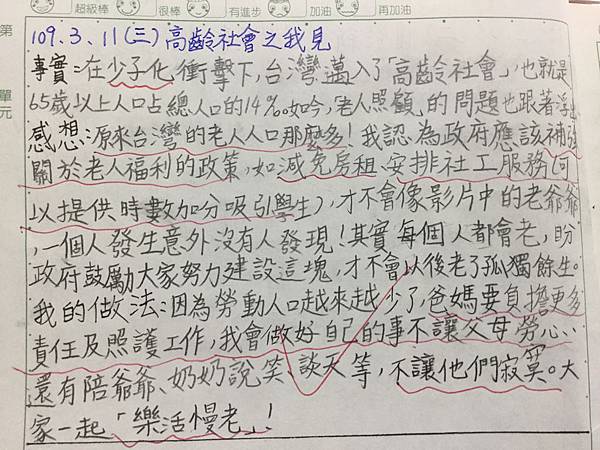 超級棒 很棒 有進步 加油 再加油
第
單元
109.3.11(三)高齡社會之我見
事實:在少子化衝擊下,台灣邁入了「高齡社會」,也就是
65歲以上人口占總人口的14%。如今,「老人照顧」的問題也跟著浮出
感想:原來台灣的老人人口那麼多!我認為政府應該補強
關於老人福利的政策,如減免房租、安排社工服務(可
以提供時數加分吸引學生),才不會像影片中的老爺爺
,一個人發生意外沒有人發現!其實每個人都會老,盼
政府鼓勵大家努力建設這塊,才不會以後老了孤獨餘生。
我的做法:因為勞動人口越來越少了,爸媽要負擔更多
責任及照護工作,我會做好自己的事不讓父母勞心、
還有陪爺爺、奶奶說笑、談天等,不讓他們寂寞。大
家一起「樂活慢老」!